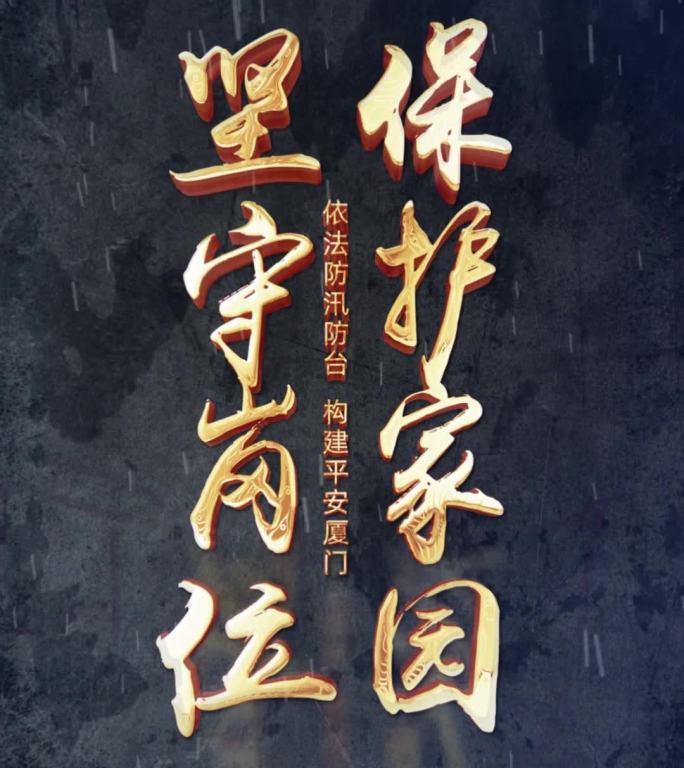 坚守岗位
依法防汛防台 构建平安厦门
保护家园